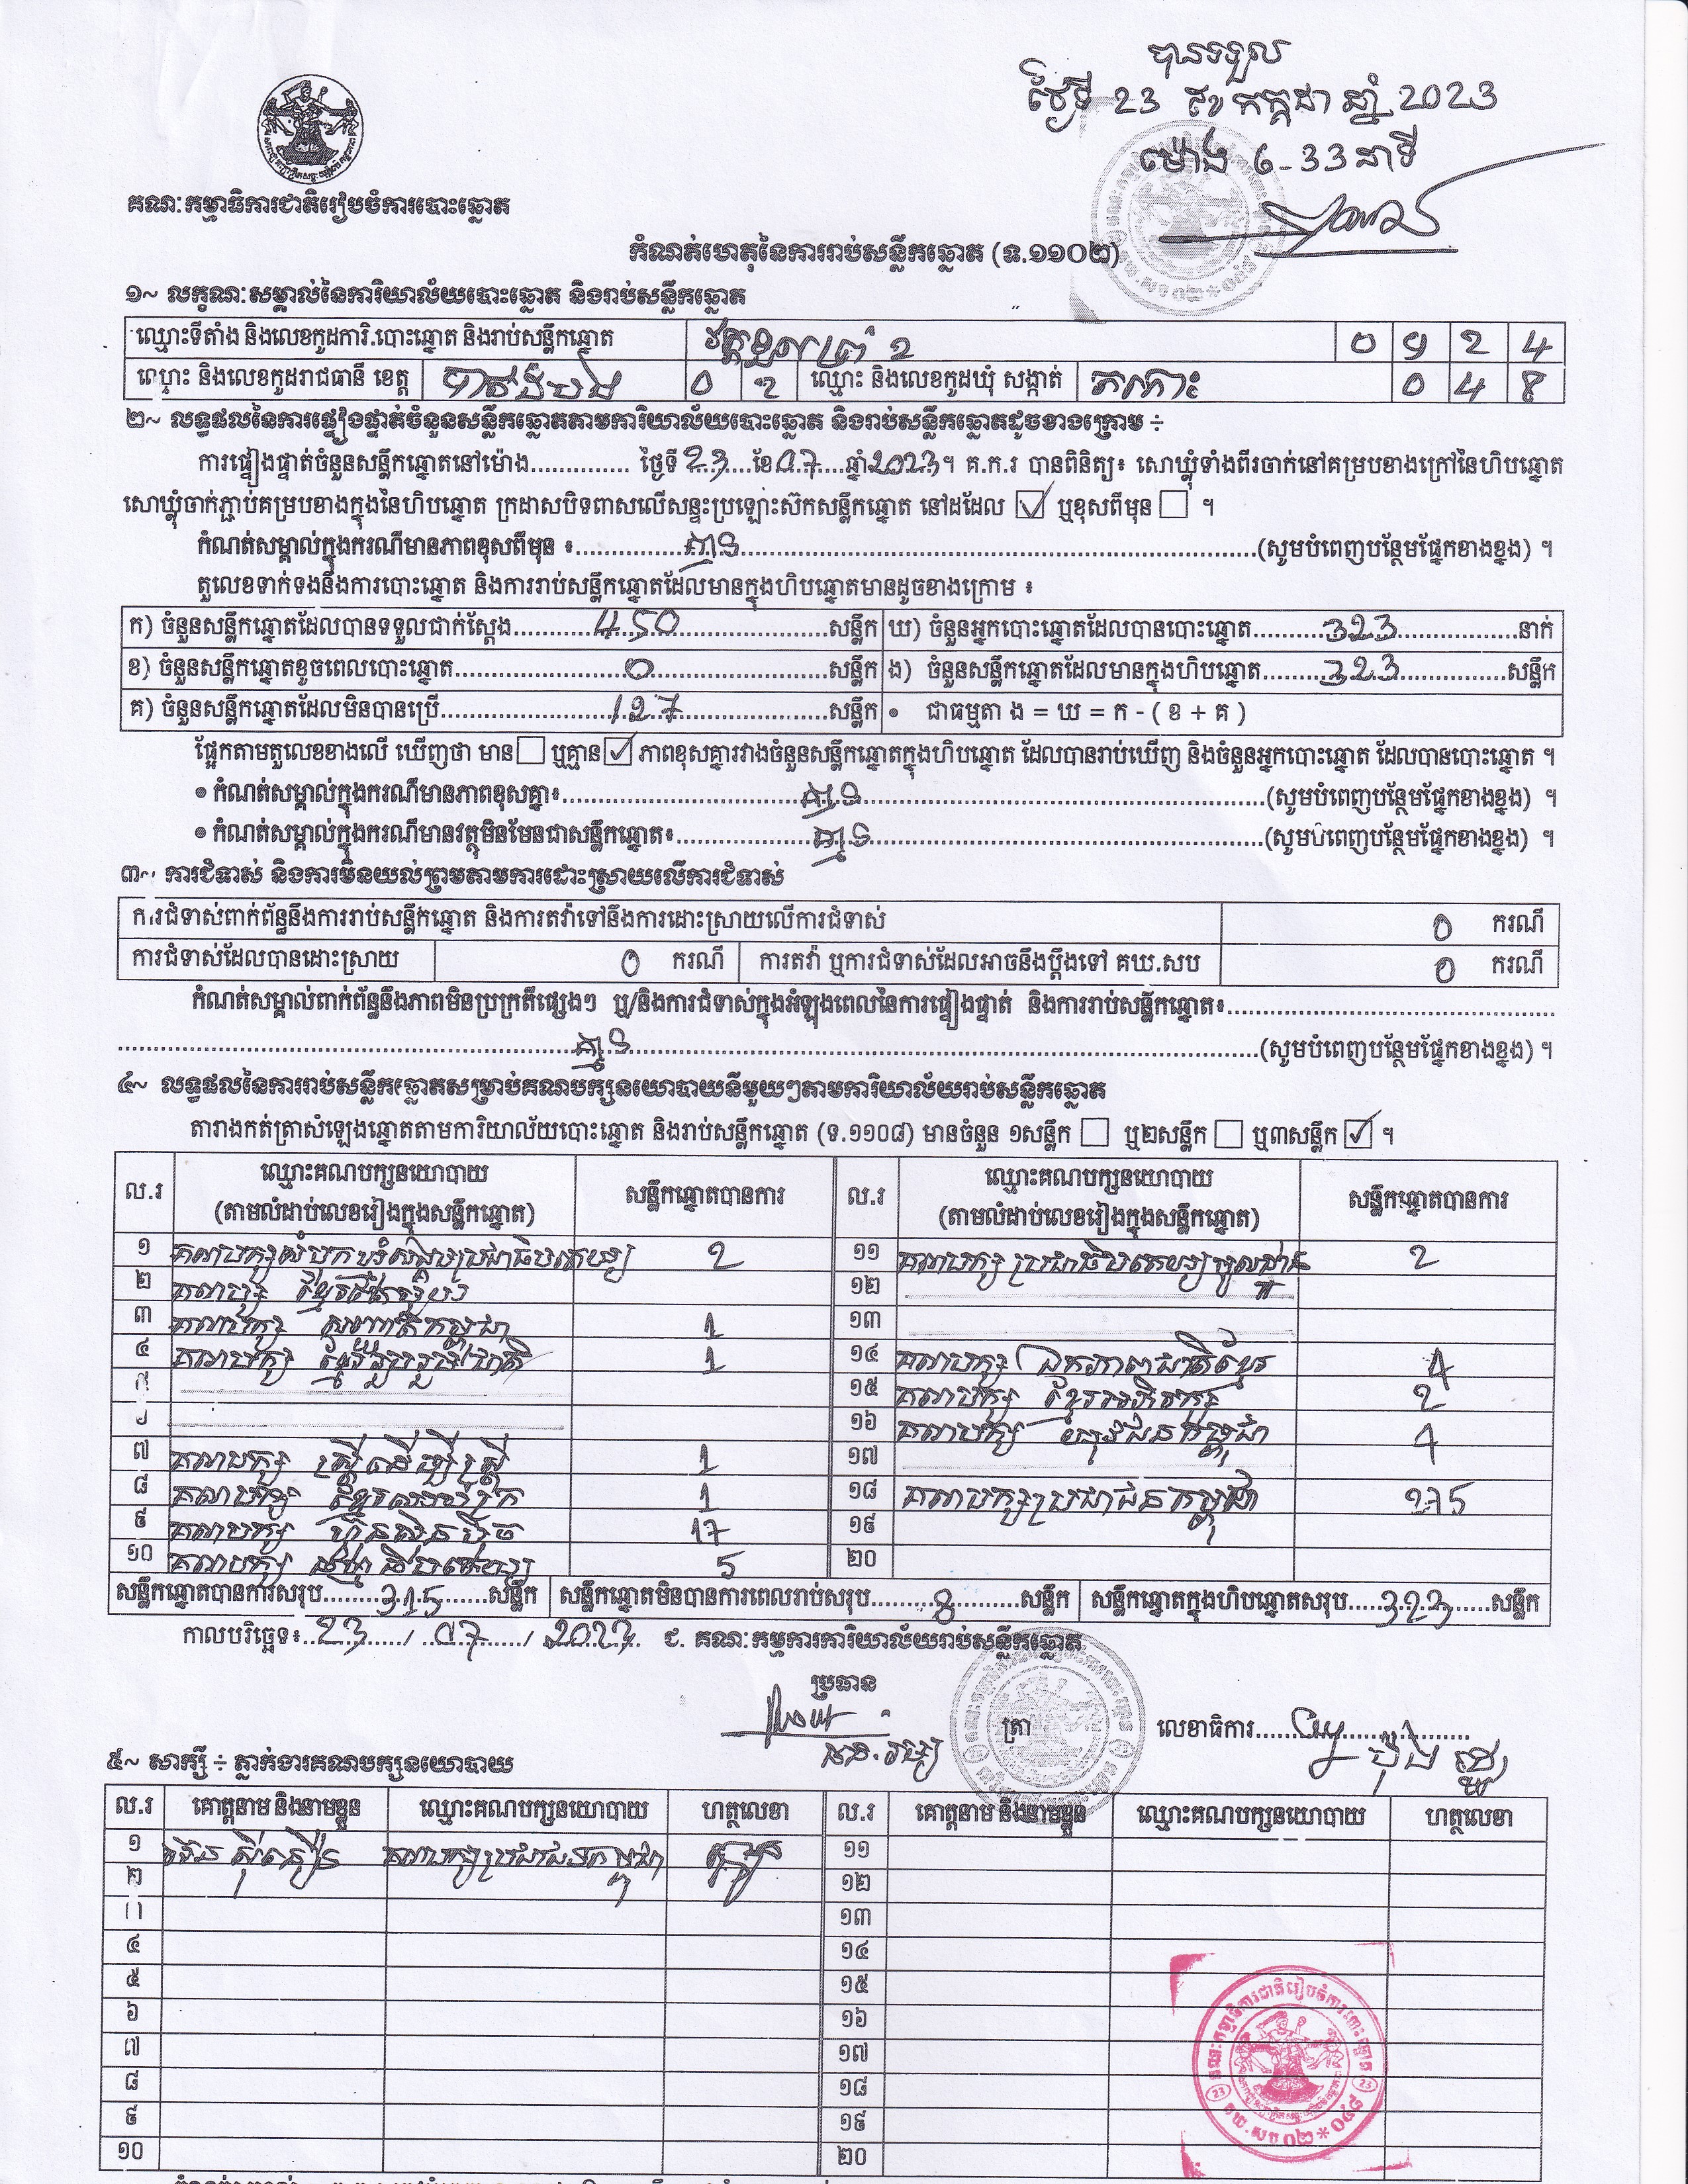 បានទទួល
ថ្ងៃទី 23 ខែ កក្កដា ឆ្នាំ 2023
ម៉ោង 6-33 នាទី
គណៈកម្មាធិការជាតិរៀបចំការបោះឆ្នោត
កំណត់ហេតុនៃការរាប់សន្លឹកឆ្នោត (ទ.១១០២)
១~ លក្ខណៈសម្គាល់នៃការិយាល័យបោះឆ្នោត និងរាប់សន្លឹកឆ្នោត
ឈ្មោះទីតាំង និងលេខកូដការិ.បោះឆ្នោត និងរាប់សន្លឹកឆ្នោត 0 9 2 4
ឈ្មោះ និងលេខកូដរាជធានី ខេត្ត បាត់ដំបង 0 2 ឈ្មោះ និងលេខកូដឃុំ សង្កាត់ 0 4 8
២~ លទ្ធផលនៃការផ្ទៀងផ្ទាត់ចំនួនសន្លឹកឆ្នោតតាមការិយាល័យបោះឆ្នោត និងរាប់សន្លឹកឆ្នោតដូចខាងក្រោម ÷
ការផ្ទៀងផ្ទាត់ចំនួនសន្លឹកឆ្នោតនៅម៉ោង.............. ថ្ងៃទី 23 ខែ 07 ឆ្នាំ 2023។ គ.ក.រ បានពិនិត្យ៖ សោឃ្លុំទាំងពីរចាក់នៅគម្របខាងក្រៅនៃហិបឆ្នោត
សោឃ្លុំចាក់ភ្ជាប់គម្របខាងក្នុងនៃហិបឆ្នោត ក្រដាសបិទពាសលើសន្ទះប្រឡោះស៊កសន្លឹកឆ្នោត នៅដដែល ☑ ឬខុសពីមុន ☐ ។
កំណត់សម្គាល់ក្នុងករណីមានភាពខុសពីមុន ៖ គ្មាន (សូមបំពេញបន្ថែមផ្នែកខាងខ្នង) ។
តួលេខទាក់ទងនឹងការបោះឆ្នោត និងការរាប់សន្លឹកឆ្នោតដែលមានក្នុងហិបឆ្នោតមានដូចខាងក្រោម ៖
ក) ចំនួនសន្លឹកឆ្នោតដែលបានទទួលជាក់ស្តែង 450 សន្លឹក ឃ) ចំនួនអ្នកបោះឆ្នោតដែលបានបោះឆ្នោត 323 នាក់
ខ) ចំនួនសន្លឹកឆ្នោតខូចពេលបោះឆ្នោត 0 សន្លឹក ង) ចំនួនសន្លឹកឆ្នោតដែលមានក្នុងហិបឆ្នោត 323 សន្លឹក
គ) ចំនួនសន្លឹកឆ្នោតដែលមិនបានប្រើ 127 សន្លឹក • ជាធម្មតា ង = ឃ = ក - ( ខ + គ )
ផ្អែកតាមតួលេខខាងលើ ឃើញថា មាន ☐ ឬគ្មាន ☑ ភាពខុសគ្នារវាងចំនួនសន្លឹកឆ្នោតក្នុងហិបឆ្នោត ដែលបានរាប់ឃើញ និងចំនួនអ្នកបោះឆ្នោត ដែលបានបោះឆ្នោត ។
• កំណត់សម្គាល់ក្នុងករណីមានភាពខុសគ្នា៖ គ្មាន (សូមបំពេញបន្ថែមផ្នែកខាងខ្នង) ។
• កំណត់សម្គាល់ក្នុងករណីមានវត្ថុមិនមែនជាសន្លឹកឆ្នោត៖ គ្មាន (សូមបំពេញបន្ថែមផ្នែកខាងខ្នង) ។
៣~ ការជំទាស់ និងការមិនយល់ព្រមតាមការដោះស្រាយលើការជំទាស់
ការជំទាស់ពាក់ព័ន្ធនឹងការរាប់សន្លឹកឆ្នោត និងការតវ៉ាទៅនឹងការដោះស្រាយលើការជំទាស់ 0 ករណី
ការជំទាស់ដែលបានដោះស្រាយ 0 ករណី ការតវ៉ា ឬការជំទាស់ដែលអាចនឹងប្តឹងទៅ គឃ.សប 0 ករណី
កំណត់សម្គាល់ពាក់ព័ន្ធនឹងភាពមិនប្រក្រតីផ្សេងៗ ឬ/និងការជំទាស់ក្នុងអំឡុងពេលនៃការផ្ទៀងផ្ទាត់ និងការរាប់សន្លឹកឆ្នោត៖
គ្មាន (សូមបំពេញបន្ថែមផ្នែកខាងខ្នង) ។
៤~ លទ្ធផលនៃការរាប់សន្លឹកឆ្នោតសម្រាប់គណបក្សនយោបាយនីមួយៗតាមការិយាល័យរាប់សន្លឹកឆ្នោត
តារាងកត់ត្រាសំឡេងឆ្នោតតាមការិយាល័យបោះឆ្នោត និងរាប់សន្លឹកឆ្នោត (ទ.១១០៨) មានចំនួន ១សន្លឹក ☐ ឬ២សន្លឹក ☐ ឬ៣សន្លឹក ☑ ។
ល.រ ឈ្មោះគណបក្សនយោបាយ (តាមលំដាប់លេខរៀងក្នុងសន្លឹកឆ្នោត) សន្លឹកឆ្នោតបានការ ល.រ ឈ្មោះគណបក្សនយោបាយ (តាមលំដាប់លេខរៀងក្នុងសន្លឹកឆ្នោត) សន្លឹកឆ្នោតបានការ
១ គណបក្សសំបុកឃ្មុំសង្គមប្រជាធិបតេយ្យ 2 ១១ គណបក្ស ប្រជាធិបតេយ្យមូលដ្ឋាន 2
២ គណបក្ស ខ្មែរតែមួយ ១២
៣ គណបក្ស សញ្ជាតិកម្ពុជា 1 ១៣
៤ គណបក្ស ខ្មែររួបរួមជាតិ 1 ១៤ គណបក្ស ឯកភាពជាតិខ្មែរ 4
៥ ១៥ គណបក្ស ខ្មែរអភិរក្ស 2
១៦ គណបក្ស យុវជនកម្ពុជា 4
៧ គណបក្ស ស្ត្រីដើម្បីស្ត្រី 1 ១៧
៨ គណបក្ស ខ្មែរ 1 ១៨ គណបក្សប្រជាជនកម្ពុជា 275
៩ គណបក្ស ហ៊្វុនស៊ិនប៉ិច 17 ១៩
១០ គណបក្ស ធម្មាធិបតេយ្យ 5 ២០
សន្លឹកឆ្នោតបានការសរុប 315 សន្លឹក សន្លឹកឆ្នោតមិនបានការពេលរាប់សរុប 8 សន្លឹក សន្លឹកឆ្នោតក្នុងហិបឆ្នោតសរុប 323 សន្លឹក
កាលបរិច្ឆេទ៖ 23 / 07 / 2023 ជ. គណៈកម្មការការិយាល័យរាប់សន្លឹកឆ្នោត
ប្រធាន
ត្រា លេខាធិការ
៥~ សាក្សី ÷ ភ្នាក់ងារគណបក្សនយោបាយ
ល.រ គោត្តនាម និងនាមខ្លួន ឈ្មោះគណបក្សនយោបាយ ហត្ថលេខា ល.រ គោត្តនាម និងនាមខ្លួន ឈ្មោះគណបក្សនយោបាយ ហត្ថលេខា
១ គណបក្សប្រជាជនកម្ពុជា ១១
២ ១២
១៣
៤ ១៤
៥ ១៥
៦ ១៦
៧ ១៧
៨ ១៨
៩ ១៩
១០ ២០
គណៈកម្មាធិការជាតិរៀបចំការបោះឆ្នោត
23 23
គឃ.សប ០២*០៤៨